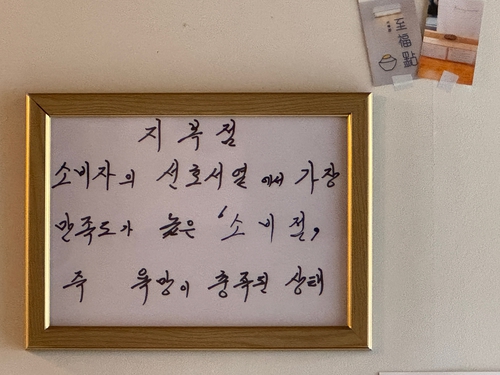 지복점
소비자의 선호서열에서 가장
만족도가 높은 '소비점,
즉 욕망이 충족된 상태
至福點